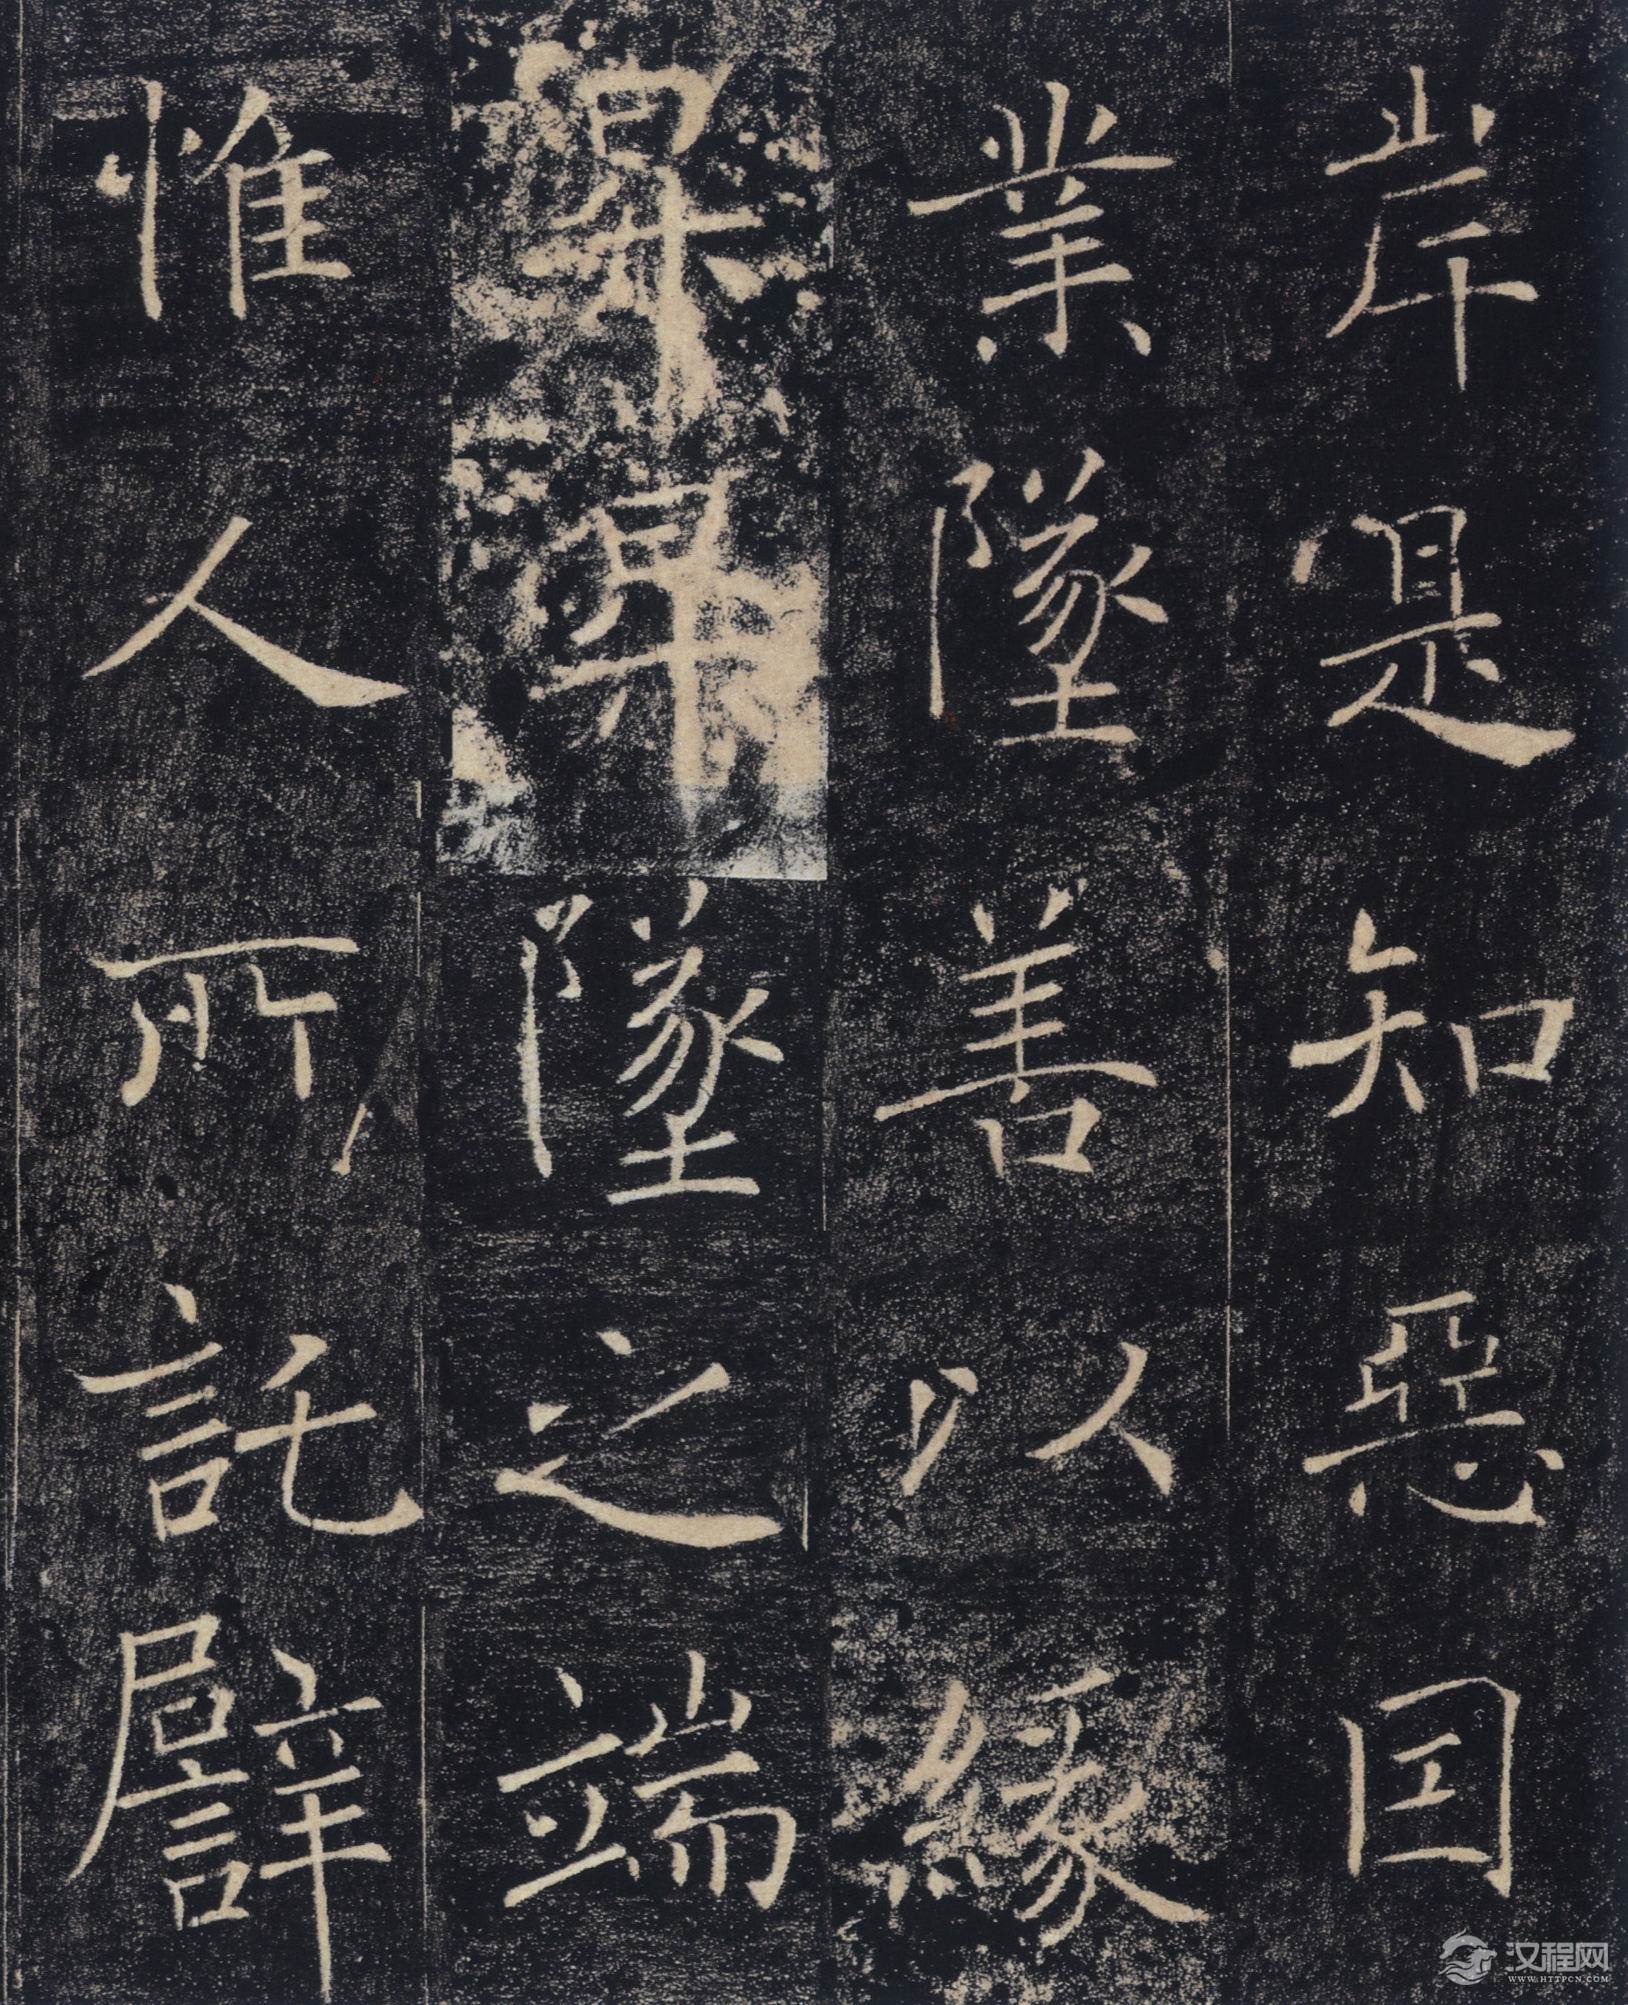 岸是知惡因
業墜善以緣
昇昇墜之端
惟人所託譬
汉程网
WWW.HTTPCN.COM